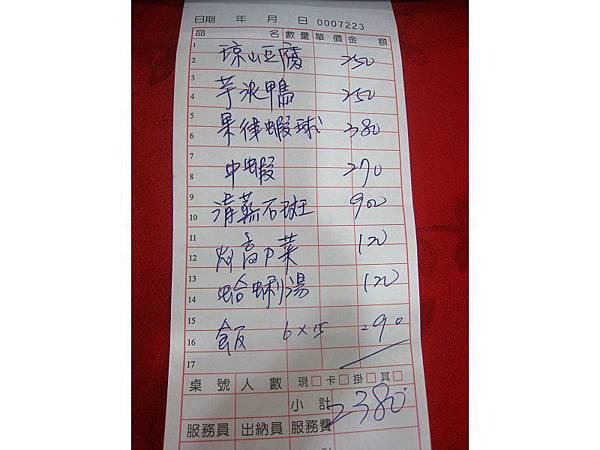 日期 年 月 日 0007223
品 名 數量 單價 金 額
1
2 琼山豆腐 250
3
4 芋泥鴨 250
5
6 果律蝦球 380
7
8 中蝦 270
9
10 清蒸石斑 900
11
12 菜 120
13
14 蛤蜊湯 120
15
16 飯 6×15 =90
17
桌號 人數 現□ 卡□ 掛□ 其□
小 計 2380
服務員 出納員 服務費